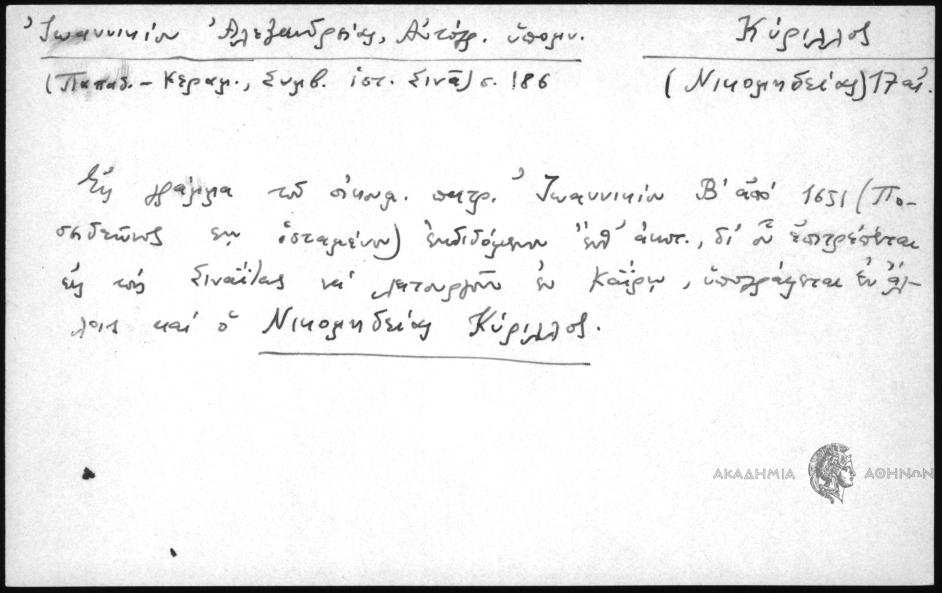 Ἰωαννικίου Ἀλεξανδρείας, Αὐτόγρ. ὑπομν.
Κύριλλος
(Παπαδ.-Κεραμ., Συμβ. ἱστ. Σινᾶ) σ. 186
(Νικομηδείας) 17 αἰ.
Εἰς γράμμα τοῦ οἰκουμ. πατρ. Ἰωαννικίου Β' ἀπὸ 1651 (Πο-
ἱσταμένου) ἐκδιδόμενον, δι' οὗ ἐπιτρέπεται
εἰς τοὺς Σιναΐτας νὰ λειτουργοῦν ἐν Καΐρῳ, ὑπογράφεται ἐν ἄλ-
λοις καὶ ὁ Νικομηδείας Κύριλλος.
ΑΚΑΔΗΜΙΑ ΑΘΗΝΩΝ